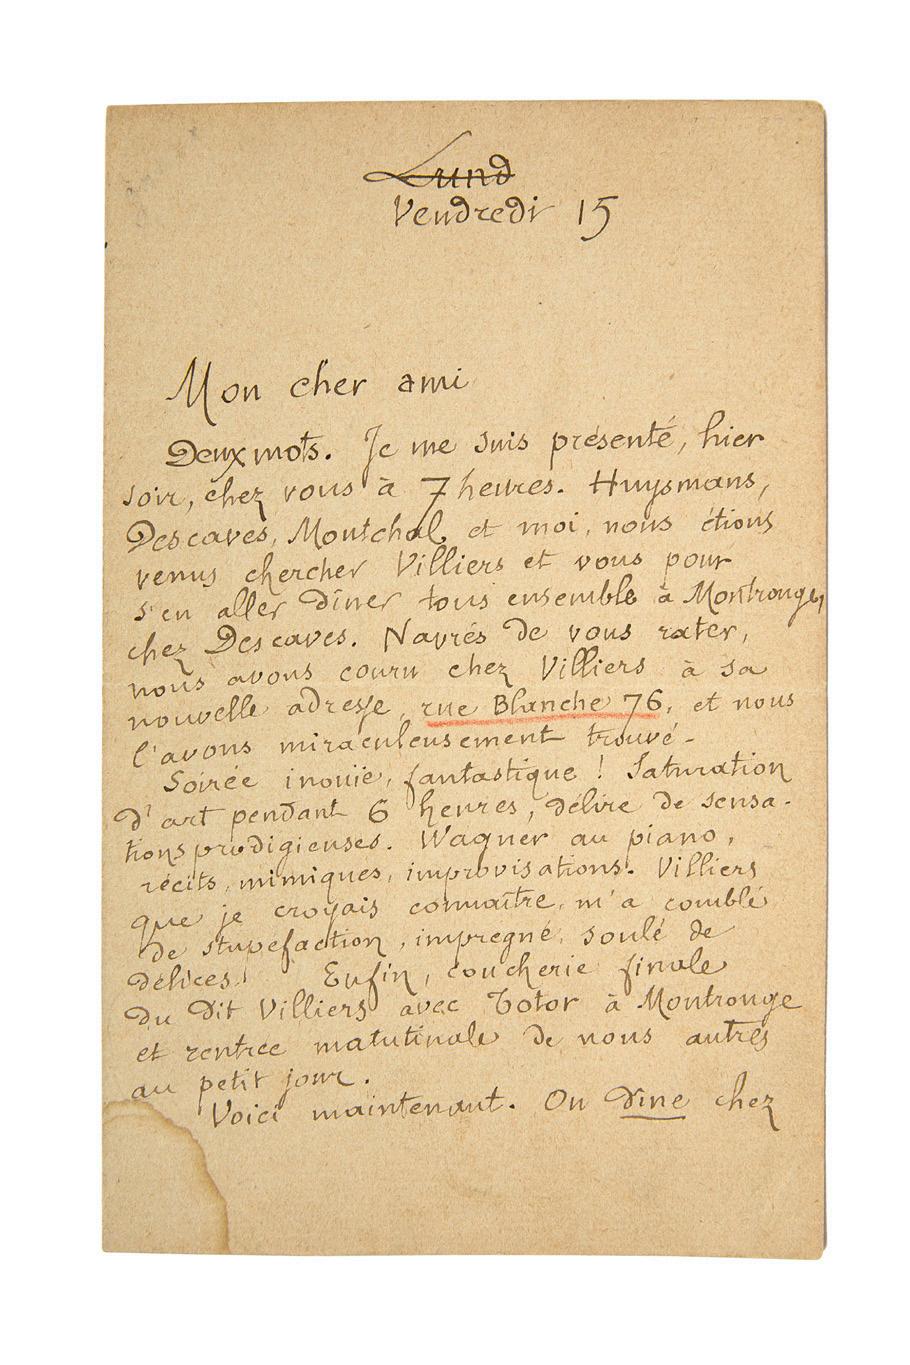 Lund
Vendredi 15
Mon cher ami
Deux mots. Je me suis présenté, hier
soir, chez vous à 7 heures. Huysmans,
Descaves, Montchal et moi, nous étions
venus chercher Villiers et vous pour
s'en aller dîner tous ensemble à Montrouge,
chez Descaves. Navrés de vous rater,
nous avons couru chez Villiers à sa
nouvelle adresse, rue Blanche 76, et nous
l'avons miraculeusement trouvé.
Soirée inouïe, fantastique ! Saturation
d'art pendant 6 heures, délire de sensa-
tions prodigieuses. Wagner au piano,
récits, mimiques, improvisations. Villiers
que je croyais connaître, m'a comblé
de stupéfaction, imprégné, soulé de
délices! Enfin, coucherie finale
du dit Villiers avec Totor à Montrouge
et rentrée matutinale de nous autres
au petit jour.
Voici maintenant. On dîne chez